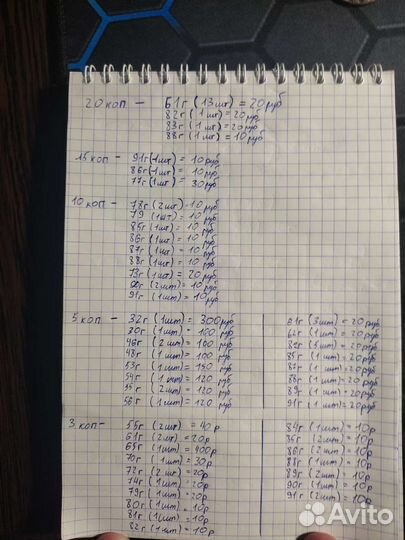 20 коп - 61г (13шт) = 20 руб
82г (1шт) = 20 руб
83г (1шт) = 20 руб
88г (1шт) = 10 руб
15 коп - 91г (1шт) = 10 руб
86г (1шт) = 10 руб
77г (1шт) = 30 руб
10 коп - 78г (2шт) - 10 руб
79 (1шт) = 10 руб
85г (1шт) = 10 руб
86г (1шт) = 10 руб
87г (1шт) = 10 руб
88г (1шт) = 10 руб
73г (1шт) = 20 руб
(2шт) = 10 руб
91г (1шт) = 10 руб
5 коп - 32г (1шт) = 300 руб
30г (1шт) = руб
46г (2шт) = 100 руб
48г (1шт) = 100 руб
53г (1шт) = 150 руб
54г (1шт) = 120 руб
55г (2шт) = 120 руб
56г (1шт) = 120 руб
61г (3шт) = 20 руб
62г (1шт) = 20 руб
82г (3шт) = 20 руб
85г (1шт) = 20 руб
87г (1шт) = 20 руб
88г (1шт) = 20 руб
89г (1шт) = 20 руб
91г (1шт) = 20 руб
3 коп - 55г (2шт) = 40р
61г (2шт) = 20р
65г (1шт) = 400р
70г (1шт) = 30р
72г (2шт) = 20р
74г (1шт) = 20р
79г (1шт) = 20р
80г (1шт) = 10р
81г (1шт) = 10р
82г (1шт) = 10р
84г (1шт) = 10р
85г (2шт) = 10р
86г (2шт) = 10р
88г (1шт) = 10р
89г (2шт) = 10р
90г (1шт) = 10р
91г (2шт) = 10р
Avito